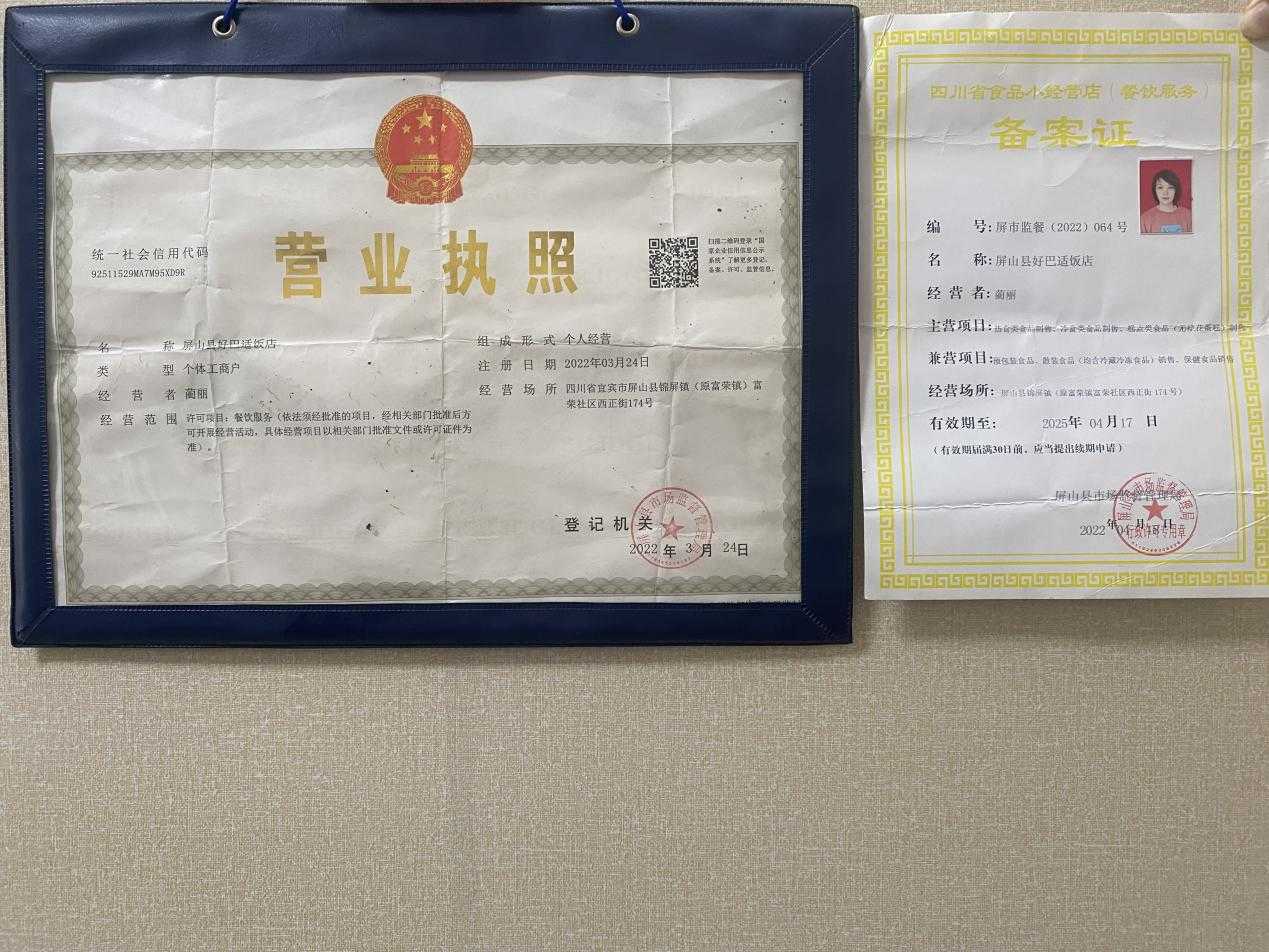 营业执照
统一社会信用代码
92511529MA7M95XD9R
扫描二维码登录“国
家企业信用信息公示
系统”了解更多登记、
备案、许可、监管信息。
名 称 屏山县好巴适饭店
类 型 个体工商户
经 营 者 蔺丽
经 营 范 围 许可项目：餐饮服务（依法须经批准的项目，经相关部门批准后方
可开展经营活动，具体经营项目以相关部门批准文件或许可证件为
准）。
组 成 形 式 个人经营
注 册 日 期 2022年03月24日
经 营 场 所 四川省宜宾市屏山县锦屏镇（原富荣镇）富
荣社区西正街174号
登记机关
2022 年 3 月 24日
四川省食品小经营店（餐饮服务）
备案证
编 号：屏市监餐（2022）064 号
名 称：屏山县好巴适饭店
经 营 者：蔺丽
主营项目：热食类食品制售、冷食类食品制售、糕点类食品（无裱花蛋糕）制售
兼营项目：预包装食品、散装食品（均含冷藏冷冻食品）销售、保健食品销售
经营场所：屏山县锦屏镇（原富荣镇富荣社区西正街174号）
有效期至： 2025年 04月17 日
（有效期届满30日前，应当提出续期申请）
屏山县市场监督管理局
2022年04月18日
行政许可专用章